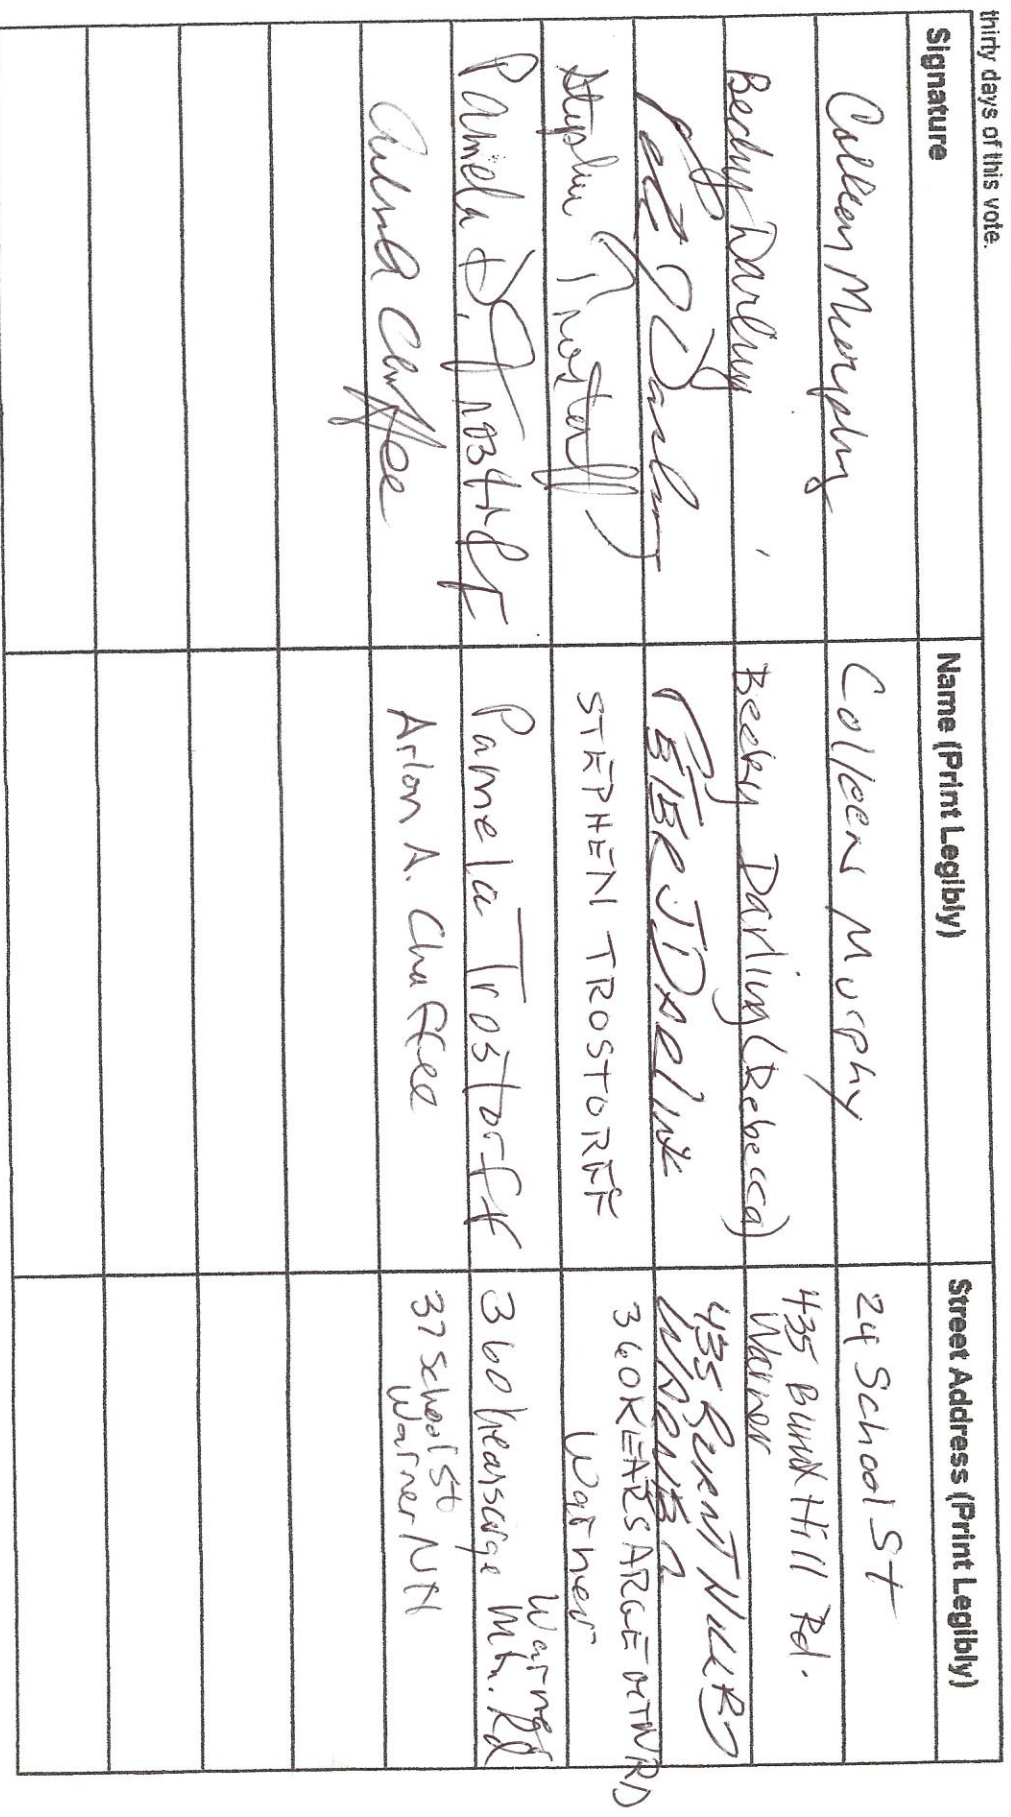 thirty days of this vote.
Signature Name (Print Legibly) Street Address (Print Legibly)
Colleen Murphy Colleen Murphy 24 School St
Becky Darling Becky Darling (Rebecca) 435 Burnt Hill Rd.
Warner
PETER J DARLING 435 BURNT HILL RD
WARNER
Stephen Trostorff STEPHEN TROSTORFF 360 KEARSARGE MTN RD
Warner
Pamela S. Trostorff Pamela Trostorff 360 Kearsarge Mtn. Rd
Warner
Chaffee Arlon A. Chaffee 37 School St
Warner NH